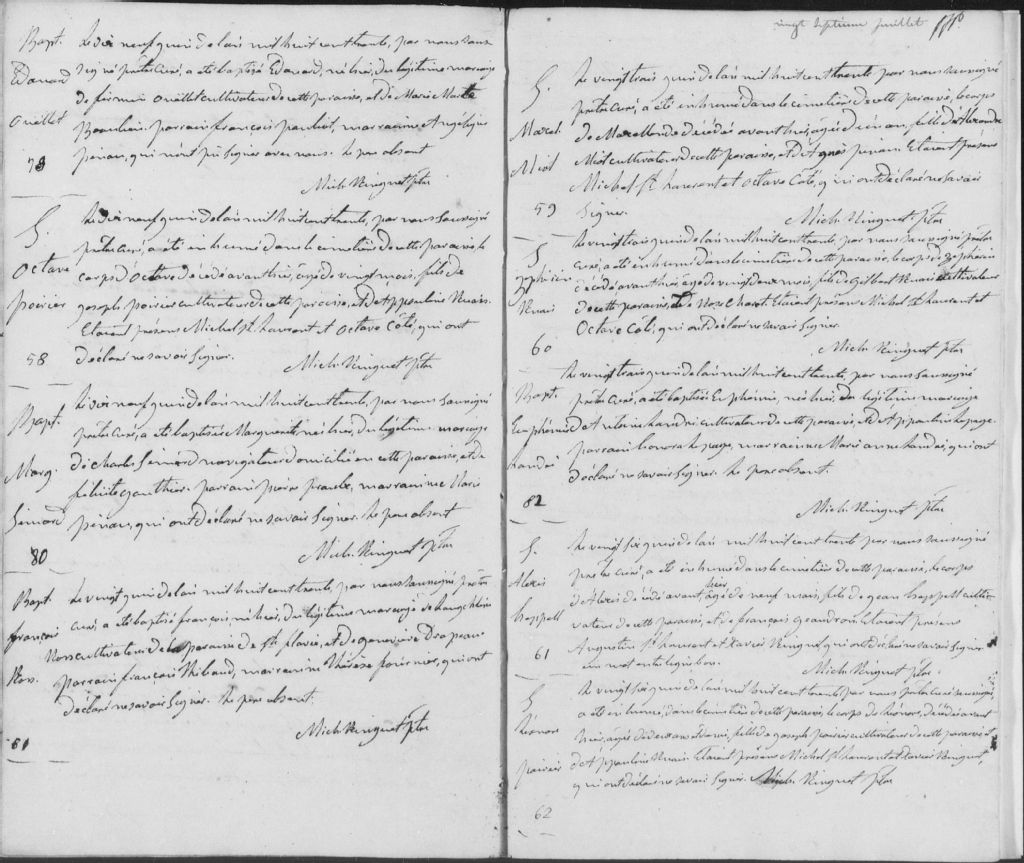 Bapt.
Edouard
Ouellet
79
Le dix neuf juin de l'an mil huit cent trente, par nous sous
signé prêtre curé, a été baptisé Edouard, né hier, du légitime mariage
de firmin Ouellet cultivateur de cette paroisse, et de Marie Marthe
Beaulieu. parrain françois paulint, marraine Angelique
pinau, qui n'ont pu signer avec nous. Le pere absent
Mich. Ringuet Ptre
S.
Octave
poirier
58
Le dix neuf juin de l'an mil huit cent trente, par nous soussigné
prêtre curé, a été inhumé dans le cimetière de cette paroisse, le
corps d'Octave décédé avant hier, agé de vingt mois, fils de
joseph poirier cultivateur de cette paroisse, et d'Appauline Ruais.
Etaient présens Michel St. Laurent et Octave Côté, qui ont
déclaré ne savoir signer.
Mich. Ringuet Ptre
Bapt.
Marg.
Simard
80
Le dix neuf juin de l'an mil huit cent trente, par nous soussigné
prêtre curé, a été baptisée Marguerite, née hier, du légitime mariage
de Charles Simard navigateur domicilié en cette paroisse, et de
félicité gauthier. parrain pierre, marraine Marie
pinau, qui ont déclaré ne savoir signer. Le pere absent
Mich. Ringuet Ptre
Bapt.
françois
Ross.
81
Le vingt juin de l'an mil huit cent trente, par nous soussigné, prêtre
curé, a été baptisé françois, né hier, du légitime mariage de
Ross cultivateur de la paroisse de Ste. flavie, et de genevieve Drapeau
parrain françois Thibaud, marraine Thérèse fournier, qui ont
déclaré ne savoir signer. Le pere absent.
Mich. Ringuet Ptre
vingt septieme juillet
S.
Marcel
Miot
59
Le vingt trois juin de l'an mil huit cent trente par nous soussigné
prêtre curé, a été inhumé dans le cimetière de cette paroisse, le corps
de décédé avant hier, agé d'un an, fils d'Alexandre
Miot cultivateur de cette paroisse, et d'Agnès pineau Etaient présens
Michel St. Laurent et Octave Côté, qui ont déclaré ne savoir
signer.
Mich. Ringuet Ptre
S.
zephirin
Ruais
60
Le vingt trois juin de l'an mil huit cent trente, par nous soussigné prêtre
curé, a été inhumé dans le cimetière de cette paroisse, le corps de zephirin
décédé avant hier, agé de vingt deux mois, fils de gilbert Ruais cultivateur
de cette paroisse, et de Etaient présens Michel St Laurent et
Octave Côté, qui ont déclaré ne savoir signer.
Mich. Ringuet Ptre
Bapt.
Euphémie
Landri
82
Le vingt trois juin de l'an mil huit cent trente, par nous soussigné
prêtre curé, a été baptisée Euphémie, née hier, du légitime mariage
d'Antoine Landri cultivateur de cette paroisse, et d'Appauline Lepage.
parrain Lepage, marraine Marie anne Landri, qui ont
déclaré ne savoir signer. Le pere absent.
Mich. Ringuet Ptre
S.
Alexis
61
Le vingt six juin de l'an mil huit cent trente par nous soussigné
prêtre curé, a été inhumé dans le cimetière de cette paroisse, le corps
hier
d'Alexis décédé avant agé de neuf mois, fils de jean culti-
vateur de cette paroisse, et de françoise geandron Etaient présens
Augustin St Laurent et Xavier Ringuet qui ont déclaré ne savoir signer
un mot entre ligne bon.
Mich. Ringuet Ptre.
S
Léonore
poirier
62
Le vingt six juin de l'an mil huit cent trente par nous prêtre curé soussigné,
a été inhumé, dans le cimetière de cette paroisse, le corps de Léonore, décédée avant
hier, agée de deux ans et demi, fille de joseph poirier cultivateur de cette paroisse et
d'Appauline Ruais. Etaient présens Michel St Laurent et Xavier Ringuet,
qui ont déclaré ne savoir signer. Mich. Ringuet Ptre